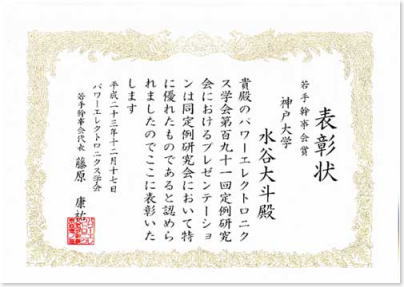 表彰状
若手幹事会賞
神戸大学
水谷大斗殿
貴殿のパワーエレクトロニク
ス学会第百九十一回定例研究
会におけるプレゼンテーショ
ンは同定例研究会において特
に優れたものであると認めら
れましたのでここに表彰いた
します
平成二十三年十二月十七日
パワーエレクトロニクス学会
若手幹事会代表 藤原 康祐